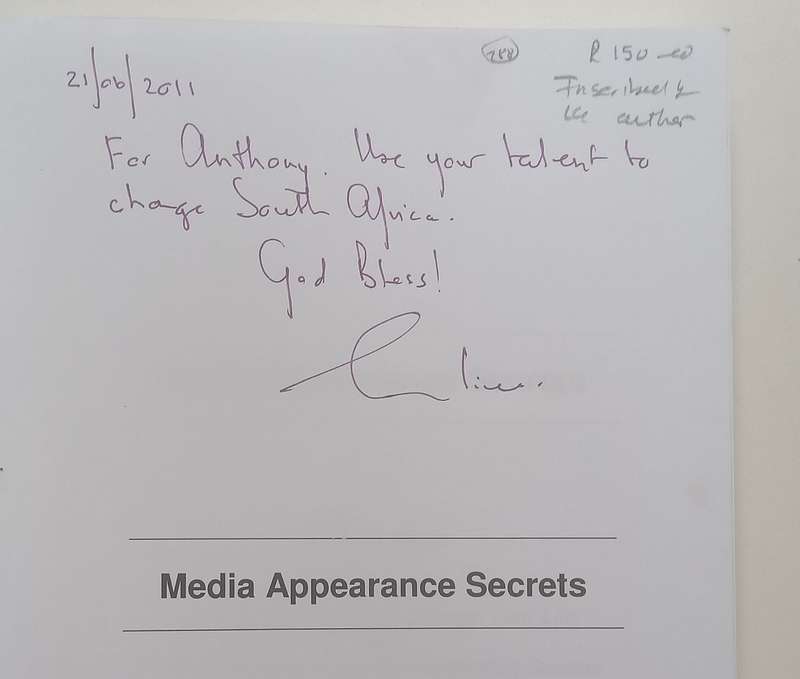 21/06/2011
288
R 150-00
Inscribed by
the author
For Anthony. Use your talent to
change South Africa.
God Bless!
Clive.
Media Appearance Secrets